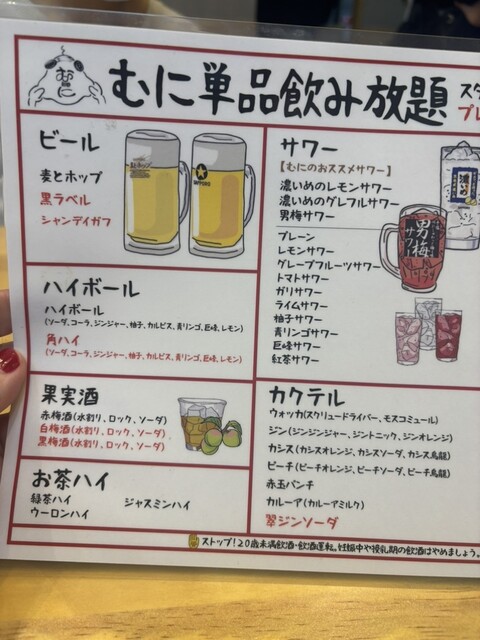 むに単品飲み放題
スタ
プレ
ビール
麦とホップ
黒ラベル
シャンディガフ
ハイボール
ハイボール
(ソーダ、コーラ、ジンジャー、柚子、カルピス、青リンゴ、巨峰、レモン)
角ハイ
(ソーダ、コーラ、ジンジャー、柚子、カルピス、青リンゴ、巨峰、レモン)
果実酒
赤梅酒(水割り、ロック、ソーダ)
白梅酒(水割り、ロック、ソーダ)
黒梅酒(水割り、ロック、ソーダ)
お茶ハイ
緑茶ハイ
ジャスミンハイ
ウーロンハイ
サワー
【むにのおススメサワー】
濃いめのレモンサワー
濃いめのグレフルサワー
男梅サワー
プレーン
レモンサワー
グレープフルーツサワー
トマトサワー
ガリサワー
ライムサワー
柚子サワー
青リンゴサワー
巨峰サワー
紅茶サワー
濃いめ
男梅
サワー
カクテル
ウォッカ(スクリュードライバー、モスコミュール)
ジン(ジンジンジャー、ジントニック、ジンオレンジ)
カシス(カシスオレンジ、カシスソーダ、カシス烏龍)
ピーチ(ピーチオレンジ、ピーチソーダ、ピーチ烏龍)
赤玉パンチ
カルーア(カルーアミルク)
翠ジンソーダ
ストップ!20歳未満飲酒・飲酒運転。妊娠中や授乳期の飲酒はやめましょう。